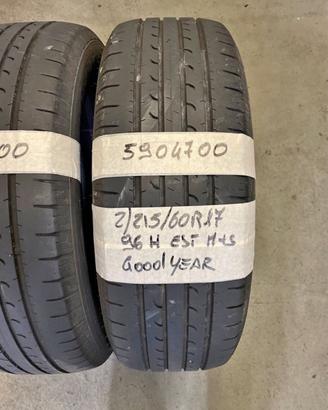 00
5904700
2/215/60R17
96 H EST M+S
GOOD YEAR